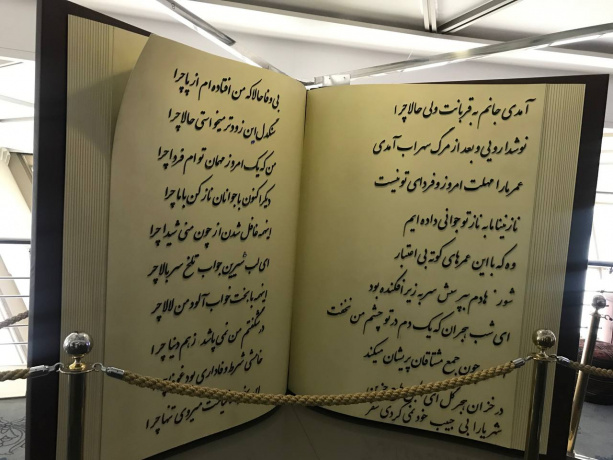 آمدی جانم به قربانت ولی حالا چرا
نوشدارویی و بعد از مرگ سهراب آمدی
عمر ما را مهلت امروز و فردای تو نیست
نازنینا ما به ناز تو جوانی داده ایم
وه که با این عمرهای کوته بی اعتبار
شور هادم بپرسش سر به زیر افکنده بود
ای شب هجران که یک دم در تو چشم من نخفت
چون جمع مشتاقان پریشان میکند
در خزان هجر گل ای
شهریارا بی حبیب خود نمی کردی سفر
بی وفا حالا که من افتاده ام از پا چرا
سنگدل این زودتر میخواستی حالا چرا
من که یک امروز مهمان توام فردا چرا
دیگر اکنون با جوانان ناز کن با ما چرا
اینهمه غافل شدن از چون منی شیدا چرا
ای لب شیرین جواب تلخ سر بالا چر
اینهمه با بخت خواب آلود من لالا چر
در شگفتم من نمی پاشد ز هم دنیا چرا
خامشی شرط وفاداری بود
میروی تنها چرا